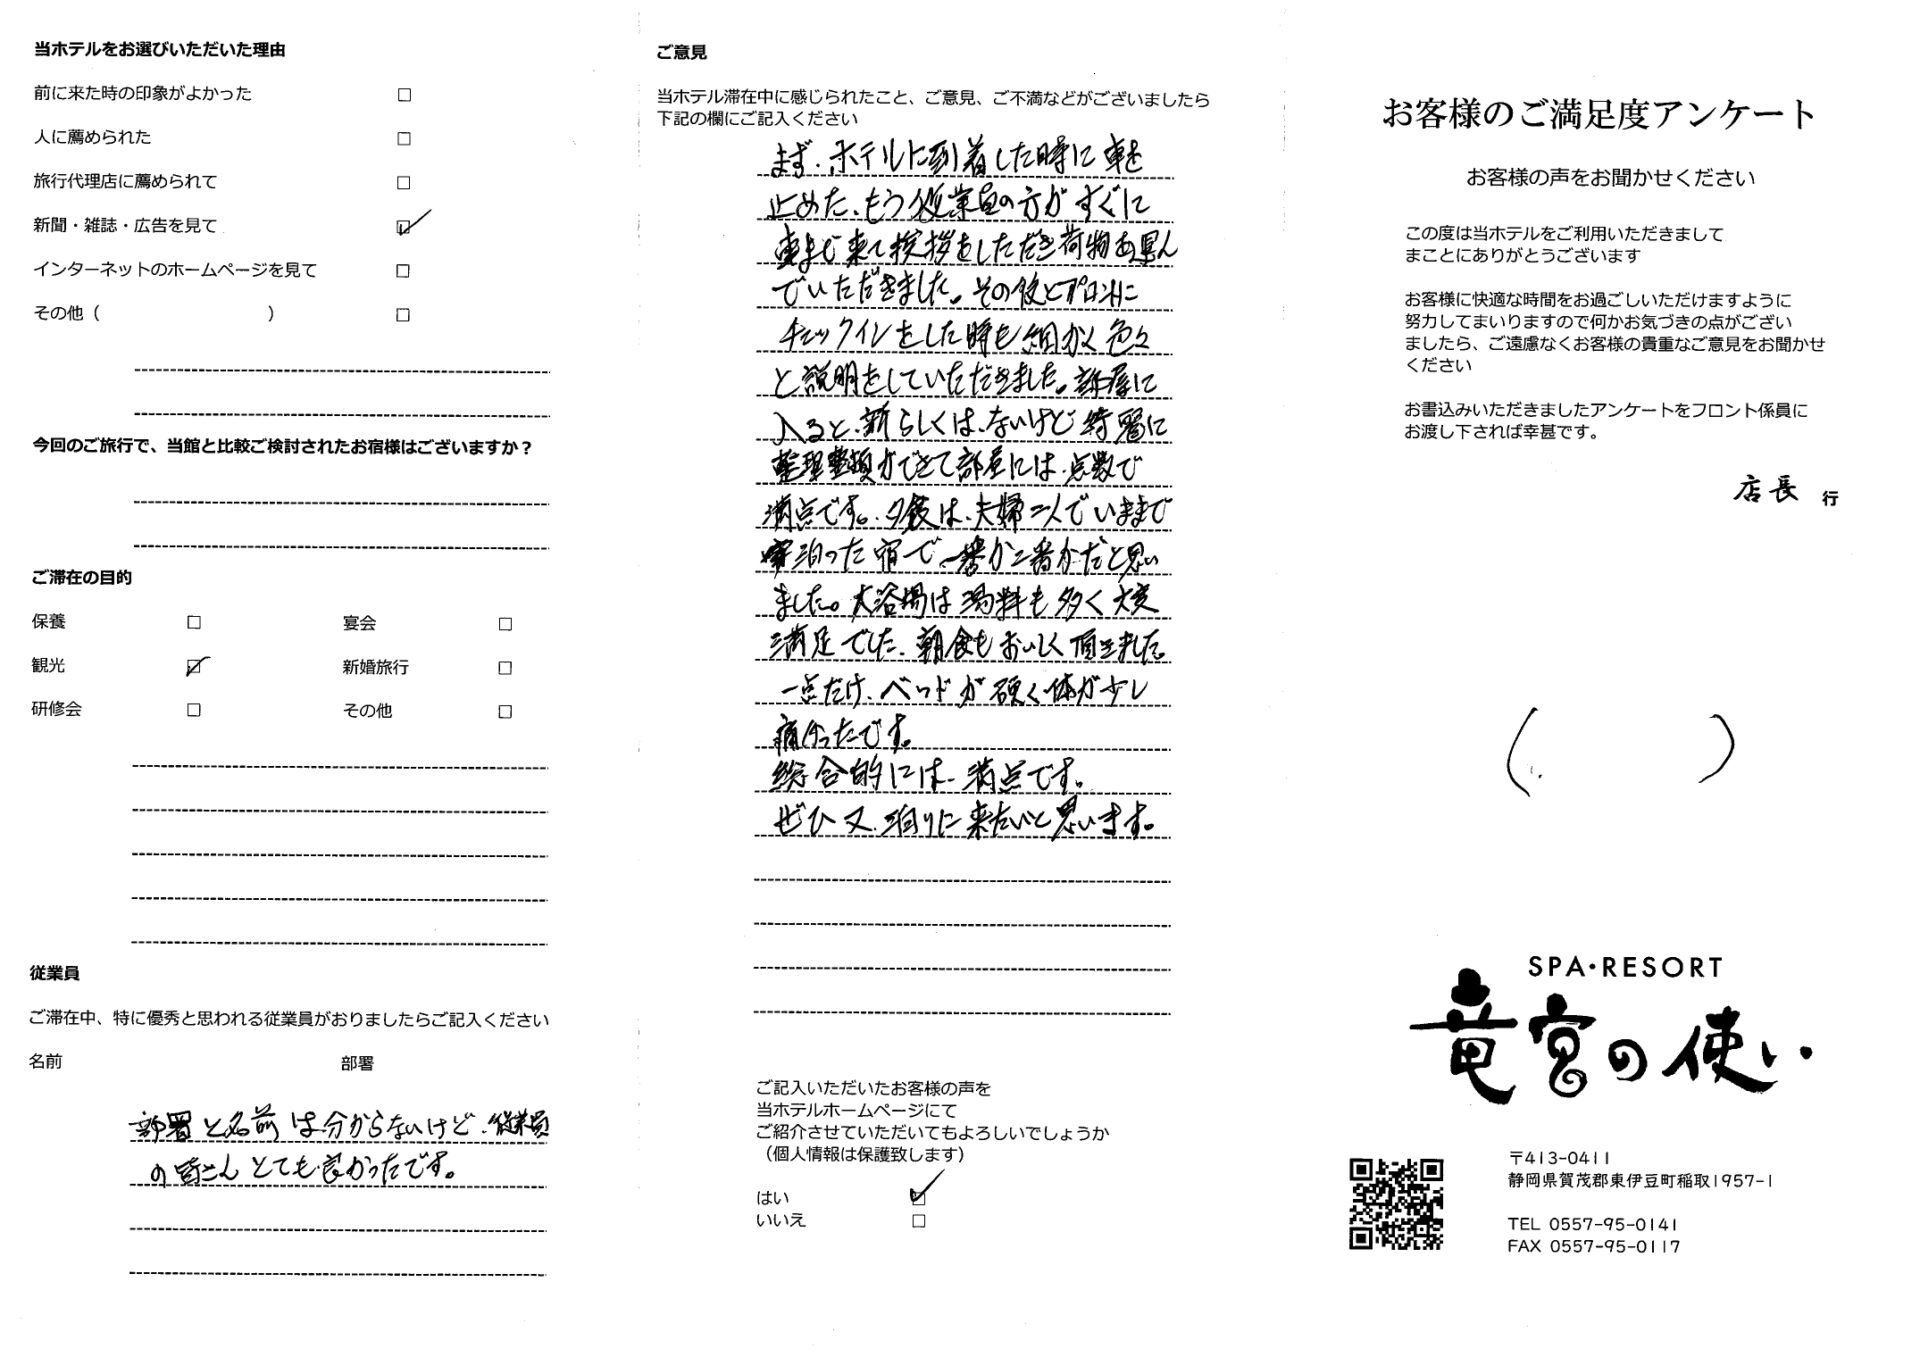 当ホテルをお選びいただいた理由
前に来た時の印象がよかった □
人に薦められた □
旅行代理店に薦められて □
新聞・雑誌・広告を見て ☑
インターネットのホームページを見て □
その他（　　　　　　　　　　） □
今回のご旅行で、当館と比較ご検討されたお宿様はございますか？
ご滞在の目的
保養 □ 宴会 □
観光 ☑ 新婚旅行 □
研修会 □ その他 □
従業員
ご滞在中、特に優秀と思われる従業員がおりましたらご記入ください
名前 部署
部署と名前は分からないけど、従業員
の皆さんとても良かったです。
ご意見
当ホテル滞在中に感じられたこと、ご意見、ご不満などがございましたら
下記の欄にご記入ください
まず、ホテルに到着した時に車を
止めた、もう従業員の方がすぐに
車まで来て挨拶をしただき荷物も運ん
でいただきました。その後とフロントに
チェックインをした時も細かく色々
と説明をしていただきました。部屋に
入ると、新らしくは、ないけど綺麗に
整理整頓ができて部屋には、点数で
満点です。夕飯は、夫婦二人でいままで
宿泊った宿で、一番か二番かだと思い
ました。大浴場は湯料も多く大変
満足でした、朝食もおいしく頂きました。
一点だけ、ベッドが硬く体が少し
痛かったです。
総合的には、満点です。
ぜひ又、泊りに来たいと思います。
ご記入いただいたお客様の声を
当ホテルホームページにて
ご紹介させていただいてもよろしいでしょうか
（個人情報は保護致します）
はい ☑
いいえ □
お客様のご満足度アンケート
お客様の声をお聞かせください
この度は当ホテルをご利用いただきまして
まことにありがとうございます
お客様に快適な時間をお過ごしいただけますように
努力してまいりますので何かお気づきの点がござい
ましたら、ご遠慮なくお客様の貴重なご意見をお聞かせ
ください
お書込みいただきましたアンケートをフロント係員に
お渡し下されば幸甚です。
店長 行
(　　　)
SPA・RESORT
竜宮の使い
〒413-0411
静岡県賀茂郡東伊豆町稲取1957-1
TEL 0557-95-0141
FAX 0557-95-0117